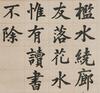 檻水繞廊
友落花水
惟有讀書
不除